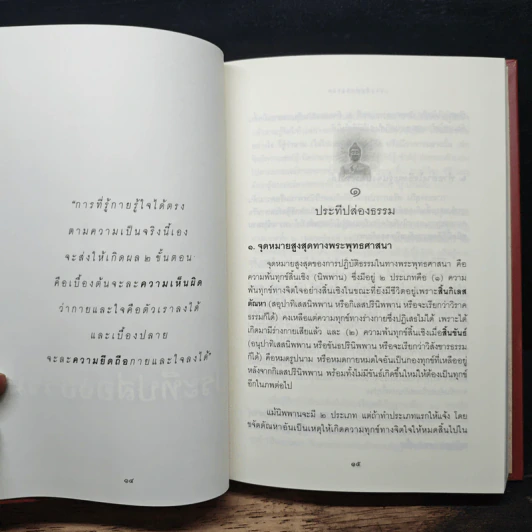 "การที่รู้กายรู้ใจได้ตรง
ตามความเป็นจริงนี้เอง
จะส่งให้เกิดผล ๒ ขั้นตอน
คือเบื้องต้นจะละความเห็นผิด
ว่ากายและใจคือตัวเราลงได้
และเบื้องปลาย
จะละความยึดถือกายและใจลงได้"
๑๔
๑
ประทีปส่องธรรม
๑. จุดหมายสูงสุดทางพระพุทธศาสนา
จุดหมายสูงสุดของการปฏิบัติธรรมในทางพระพุทธศาสนา คือ
ความพ้นทุกข์สิ้นเชิง (นิพพาน) ซึ่งมีอยู่ ๒ ประเภทคือ (๑) ความ
พ้นทุกข์ทางจิตใจอย่างสิ้นเชิงในขณะที่ยังมีชีวิตอยู่เพราะสิ้นกิเลส
ตัณหา (สอุปาทิเสสนิพพาน หรือกิเลสปรินิพพาน หรือจะเรียกว่าวิราค
ธรรมก็ได้) คงเหลือแต่ความทุกข์ทางร่างกายซึ่งปฏิเสธไม่ได้ เพราะได้
เกิดมามีร่างกายเสียแล้ว และ (๒) ความพ้นทุกข์สิ้นเชิงเมื่อสิ้นขันธ์
(อนุปาทิเสสนิพพาน หรือขันธปรินิพพาน หรือจะเรียกว่าวิสังขารธรรม
ก็ได้) คือหมดรูปนาม หรือหมดกายหมดใจอันเป็นกองทุกข์ที่เหลืออยู่
หลังจากกิเลสปรินิพพาน พร้อมทั้งไม่มีขันธ์เกิดขึ้นใหม่ให้ต้องเป็นทุกข์
อีกในภพต่อไป
แม้นิพพานจะมี ๒ ประเภท แต่ถ้าทำประเภทแรกให้แจ้ง โดย
ขจัดตัณหาอันเป็นเหตุให้เกิดความทุกข์ทางจิตใจให้หมดสิ้นไปใน
๑๕